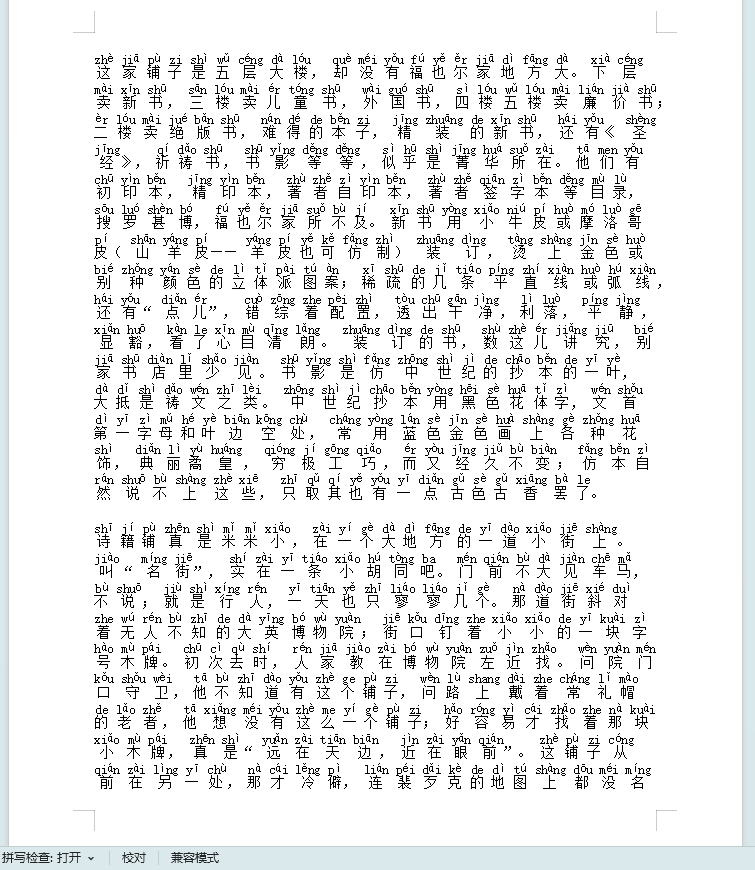 zhè jiā pù zi shì wǔ céng dà lóu què méi yǒu fú yě ěr jiā dì fāng dà xià céng
这家铺子是五层大楼，却没有福也尔家地方大。下层
mài xīn shū sān lóu mài ér tóng shū wài guó shū sì lóu wǔ lóu mài lián jià shū
卖新书，三楼卖儿童书，外国书，四楼五楼卖廉价书；
èr lóu mài jué bǎn shū nán dé de běn zi jīng zhuāng de xīn shū hái yǒu shèng
二楼卖绝版书，难得的本子，精装的新书，还有《圣
jīng qí dǎo shū shū yǐng děng děng sì hū shì jīng huá suǒ zài tā men yǒu
经》，祈祷书，书影等等，似乎是菁华所在。他们有
chū yìn běn jīng yìn běn zhù zhě zì yìn běn zhù zhě qiān zì běn děng mù lù
初印本，精印本，著者自印本，著者签字本等目录，
sōu luó shèn bó fú yě ěr jiā suǒ bù jí xīn shū yòng xiǎo niú pí huò mó luò gē
搜罗甚博，福也尔家所不及。新书用小牛皮或摩洛哥
pí shān yáng pí yáng pí yě kě fǎng zhì zhuāng dìng tàng shàng jīn sè huò
皮（山羊皮——羊皮也可仿制）装订，烫上金色或
bié zhǒng yán sè de lì tǐ pài tú àn xī shū de jǐ tiáo píng zhí xiàn huò hú xiàn
别种颜色的立体派图案；稀疏的几条平直线或弧线，
hái yǒu diǎn ér cuò zōng zhe pèi zhì tòu chū gān jìng lì luò píng jìng
还有“点儿”，错综着配置，透出干净，利落，平静，
xiǎn huō kàn le xīn mù qīng lǎng zhuāng dìng de shū shù zhè ér jiǎng jiū bié
显豁，看了心目清朗。装订的书，数这儿讲究，别
jiā shū diàn lǐ shǎo jiàn shū yǐng shì fǎng zhōng shì jì de chāo běn de yī yè
家书店里少见。书影是仿中世纪的抄本的一叶，
dà dǐ shì dǎo wén zhī lèi zhōng shì jì chāo běn yòng hēi sè huā tǐ zì wén shǒu
大抵是祷文之类。中世纪抄本用黑色花体字，文首
dì yī zì mǔ hé yè biān kōng chù cháng yòng lán sè jīn sè huà shàng gè zhǒng huā
第一字母和叶边空处，常用蓝色金色画上各种花
shì diǎn lì yù huáng qióng jí gōng qiǎo ér yòu jīng jiǔ bù biàn fǎng běn zì
饰，典丽矞皇，穷极工巧，而又经久不变；仿本自
rán shuō bù shàng zhè xiē zhǐ qǔ qí yě yǒu yī diǎn gǔ sè gǔ xiāng bà le
然说不上这些，只取其也有一点古色古香罢了。
shī jí pù zhēn shì mǐ mǐ xiǎo zài yí gè dà dì fāng de yī dào xiǎo jiē shàng
诗籍铺真是米米小，在一个大地方的一道小街上。
jiào míng jiē shí zài yī tiáo xiǎo hú tòng ba mén qián bù dà jiàn chē mǎ
叫“名街”，实在一条小胡同吧。门前不大见车马，
bù shuō jiù shì xíng rén yī tiān yě zhǐ liáo liáo jǐ gè nà dào jiē xié duì
不说；就是行人，一天也只寥寥几个。那道街斜对
zhe wú rén bù zhī de dà yīng bó wù yuàn jiē kǒu dìng zhe xiǎo xiǎo de yī kuài zì
着无人不知的大英博物院；街口钉着小小的一块字
hào mù pái chū cì qù shí rén jiā jiào zài bó wù yuàn zuǒ jìn zhǎo wèn yuàn mén
号木牌。初次去时，人家教在博物院左近找。问院门
kǒu shǒu wèi tā bù zhī dào yǒu zhè ge pù zi wèn lù shang dài zhe cháng lǐ mào
口守卫，他不知道有这个铺子，问路上戴着常礼帽
de lǎo zhě tā xiǎng méi yǒu zhè me yí gè pù zi hǎo róng yì cái zhǎo zhe nà kuài
的老者，他想没有这么一个铺子；好容易才找着那块
xiǎo mù pái zhēn shì yuǎn zài tiān biān jìn zài yǎn qián zhè pù zi cóng
小木牌，真是“远在天边，近在眼前”。这铺子从
qián zài lìng yī chù nà cái lěng pì lián péi dāi kè de dì tú shàng dōu méi míng
前在另一处，那才冷僻，连裴歹克的地图上都没名
拼写检查: 打开 校对 兼容模式